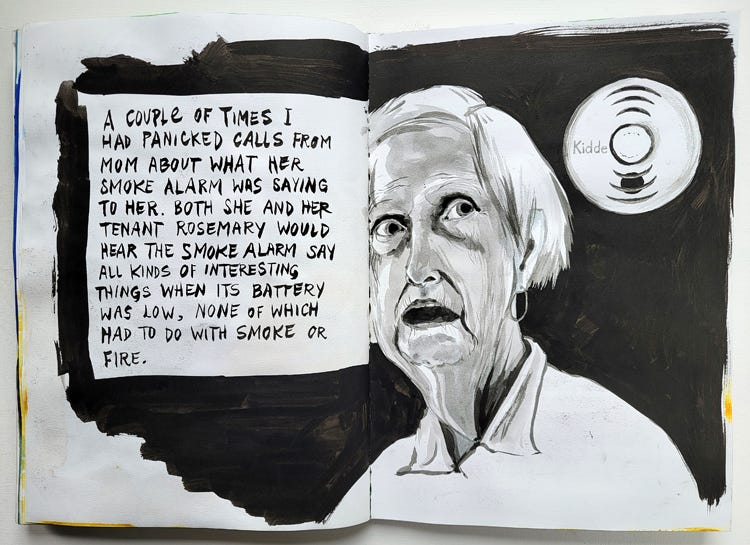 A COUPLE OF TIMES I
HAD PANICKED CALLS FROM
MOM ABOUT WHAT HER
SMOKE ALARM WAS SAYING
TO HER. BOTH SHE AND HER
TENANT ROSEMARY WOULD
HEAR THE SMOKE ALARM SAY
ALL KINDS OF INTERESTING
THINGS WHEN ITS BATTERY
WAS LOW, NONE OF WHICH
HAD TO DO WITH SMOKE OR
FIRE.
Kidde